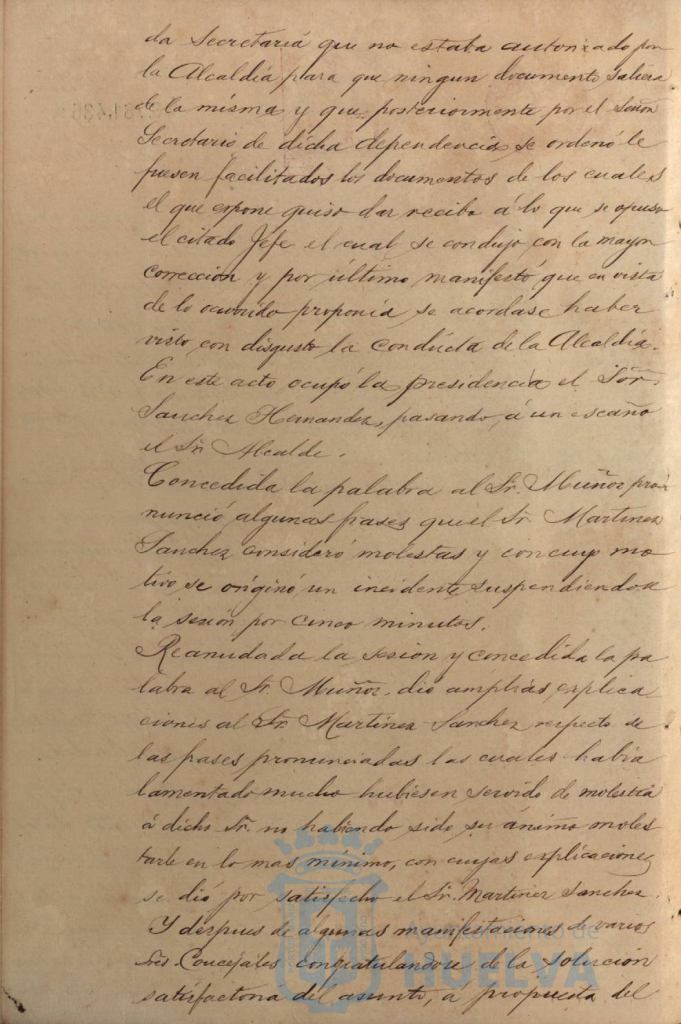 da Secretaria que no estaba autorizado por
la Alcaldía para que ningun documento saliera
de la misma y que posteriormente por el Señor
Secretario de dicha dependencia, se ordenó le
fuesen facilitados los documentos de los cuales
el que expone quiso dar recibo á lo que se opuso
el citado Jefe el cual se condujo con la mayor
corrección y por último manifestó que en vista
de lo ocurrido proponia se acordase haber
visto con disgusto la conducta de la Alcaldía.
En este acto ocupó la presidencia el Sor.
Sanchez Hernandez, pasando á un escaño
el Sr. Alcalde.
Concedida la palabra al Sr. Muñoz pro-
nunció algunas frases que el Sr. Martinez
Sanchez consideró molestas y con cuyo mo
tivo se originó un incidente suspendiendose
la sesión por cinco minutos.
Reanudada la sesion y concedida la pa
labra al Sr. Muñoz dió amplias explica
ciones al Sr. Martinez Sanchez respecto de
las frases pronunciadas las cuales habia
lamentado mucho hubiesen servido de molestia
á dicho Sr. no habiendo sido su ánimo moles
tarle en lo mas mínimo, con cuyas explicaciones
se dió por satisfecho el Sr. Martinez Sanchez.
Y despues de algunas manifestaciones de varios
Sres. Concejales congratulandose de la solución
satisfactoria del asunto, á propuesta del
Ayuntamiento de
HUELVA